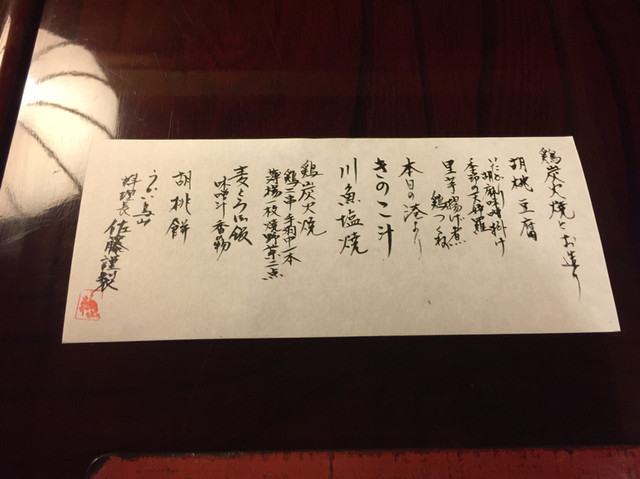 鶏炭火焼とお造り
胡桃豆腐
胡麻味噌掛け
季節の天婦羅
里芋揚げ煮
鶏つくね
本日の
より
きのこ汁
川魚塩焼
鶏炭火焼
鶏二串 手羽中一本
薄揚一枚 焼野菜二点
麦とろ御飯
味噌汁 香物
胡桃餅
うかい鳥山
料理長 佐藤謹製